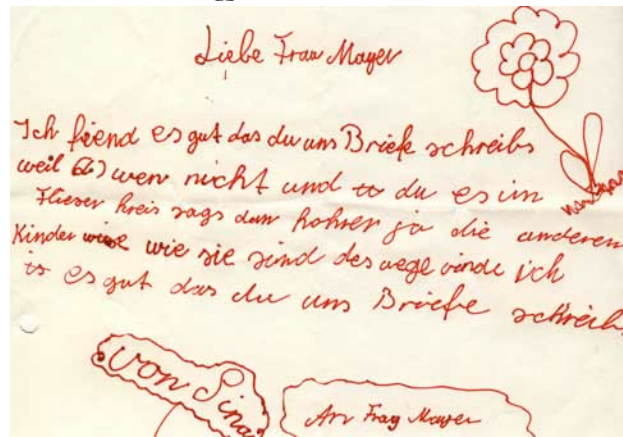 Liebe Frau Mayer
Ich fiend es gut das du uns Briefe schreibs
weil wen nicht und du es im
Flieser kreis sags dan hohrer ja die anderen
Kinder wie sie sind des wege vinde ich
es gut das du uns Briefe schreibs
von Sina
An Frau Mayer